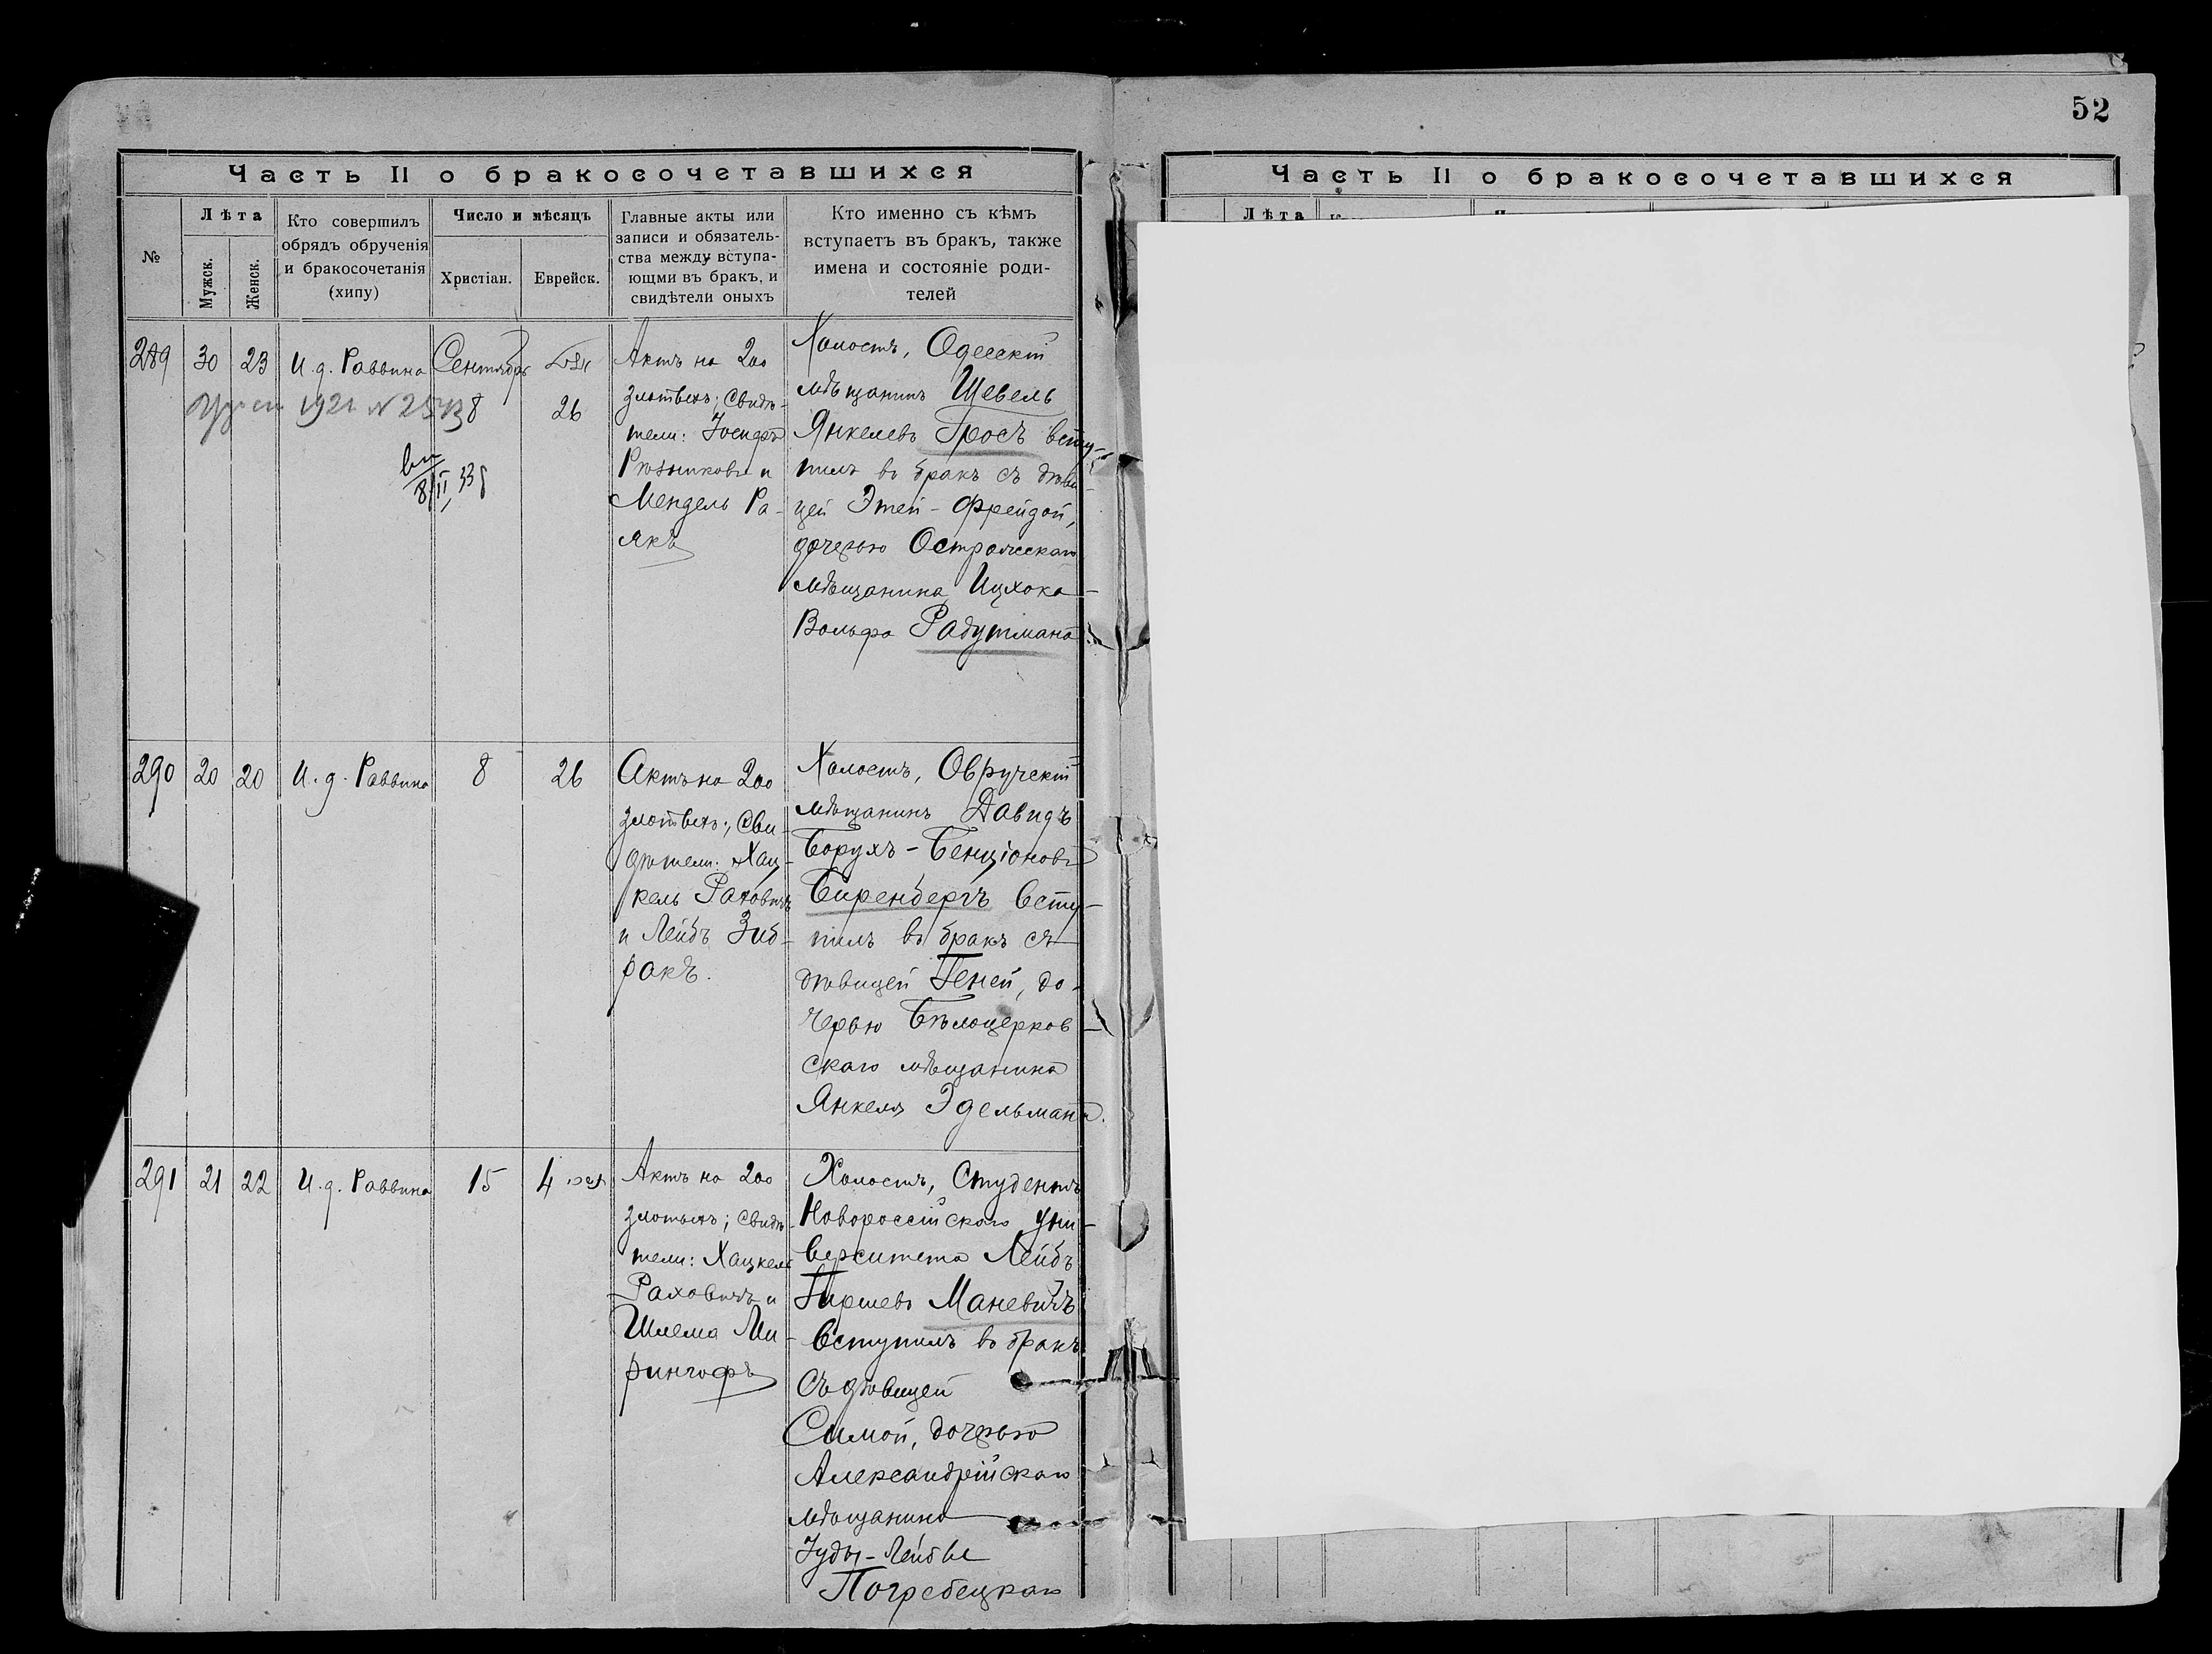 52
Часть II о бракосочетавшихся
№
Лѣта
Мужск.
Женск.
Кто совершилъ
обрядъ обрученія
и бракосочетанія
(хипу)
Число и мѣсяцъ
Христіан.
Еврейск.
Главные акты или
записи и обязатель-
ства между вступа-
ющми въ бракъ, и
свидѣтели оныхъ
Кто именно съ кѣмъ
вступаетъ въ бракъ, также
имена и состояніе роди-
телей
289
30
23
И. д. Раввина
Сентябрь
8
26
1921 №
8/II 33
Актъ на 200
злотыхъ; свидѣ-
тели: Іосифъ
и
Мендель Ра-
якъ
Холостъ, Одесскій
мѣщанинъ Шевель
Янкелевъ Гросъ всту-
пилъ въ бракъ съ дѣви-
цей Этей-Фрейдой,
дочерью Острожскаго
мѣщанина Ицхока-
Вольфа Радутмана
290
20
20
И. д. Раввина
8
26
Актъ на 200
злотыхъ; Сви-
дѣтели: Хац-
кель Раховичъ
и Лейбъ Зиб-
ракъ.
Холостъ, Овручскій
мѣщанинъ Давидъ
Борухъ-Бенціоновъ
Биренбергъ всту-
пилъ въ бракъ съ
дѣвицей Геней, до-
черью Бѣлоцерков-
скаго мѣщанина
Янкеля Эдельмана.
291
21
22
И. д. Раввина
15
4
Актъ на 200
злотыхъ; свидѣ-
тели: Хацкель
Раховичъ и
Шлема Ми-
рингофъ
Холостъ, Студентъ
Новороссійскаго Уни-
верситета Лейбъ
Гиршевъ Маневичъ
вступилъ въ бракъ
съ дѣвицей
Симой, дочерью
Александрійскаго
мѣщанина
Іуды-Лейбы
Погребецкаго
Часть II о бракосочетавшихся
Лѣта